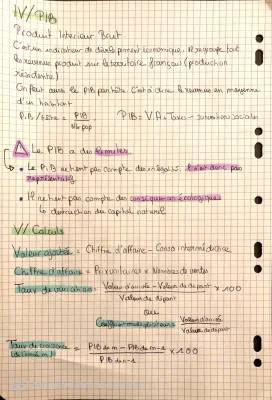 IV/ PIB
Produit Interieur Brut
C'est un indicateur de développement économique. Regroupe tout
le revenu produit sur le territoire français (production
résidente)
On peut avoir le PIB par tête. C'est à dire le revenu en moyenne
d'un habitant
PIB/tête = PIB / Nbr pop    PIB = V.A + Taxes - subventions sociales
Le PIB a des limites
• Le PIB ne tient pas compte des inégalités. Il n'est donc pas
représentatif
• Il ne tient pas compte des conséquences écologiques
↳ destruction du capital naturel
V/ Calculs
Valeur ajoutée = Chiffre d'affaire - Conso intermédiaire
Chiffre d'affaire = Prix unitaires x Nombres de ventes
Taux de variation: Valeur d'arrivée - Valeur de départ x 100
Valeur de départ
ou
Coefficient multiplicateur Valeur d'arrivée
Valeur de départ
Taux de croissance = PIB de n - PIB de n-1 x 100
PIB de n-1